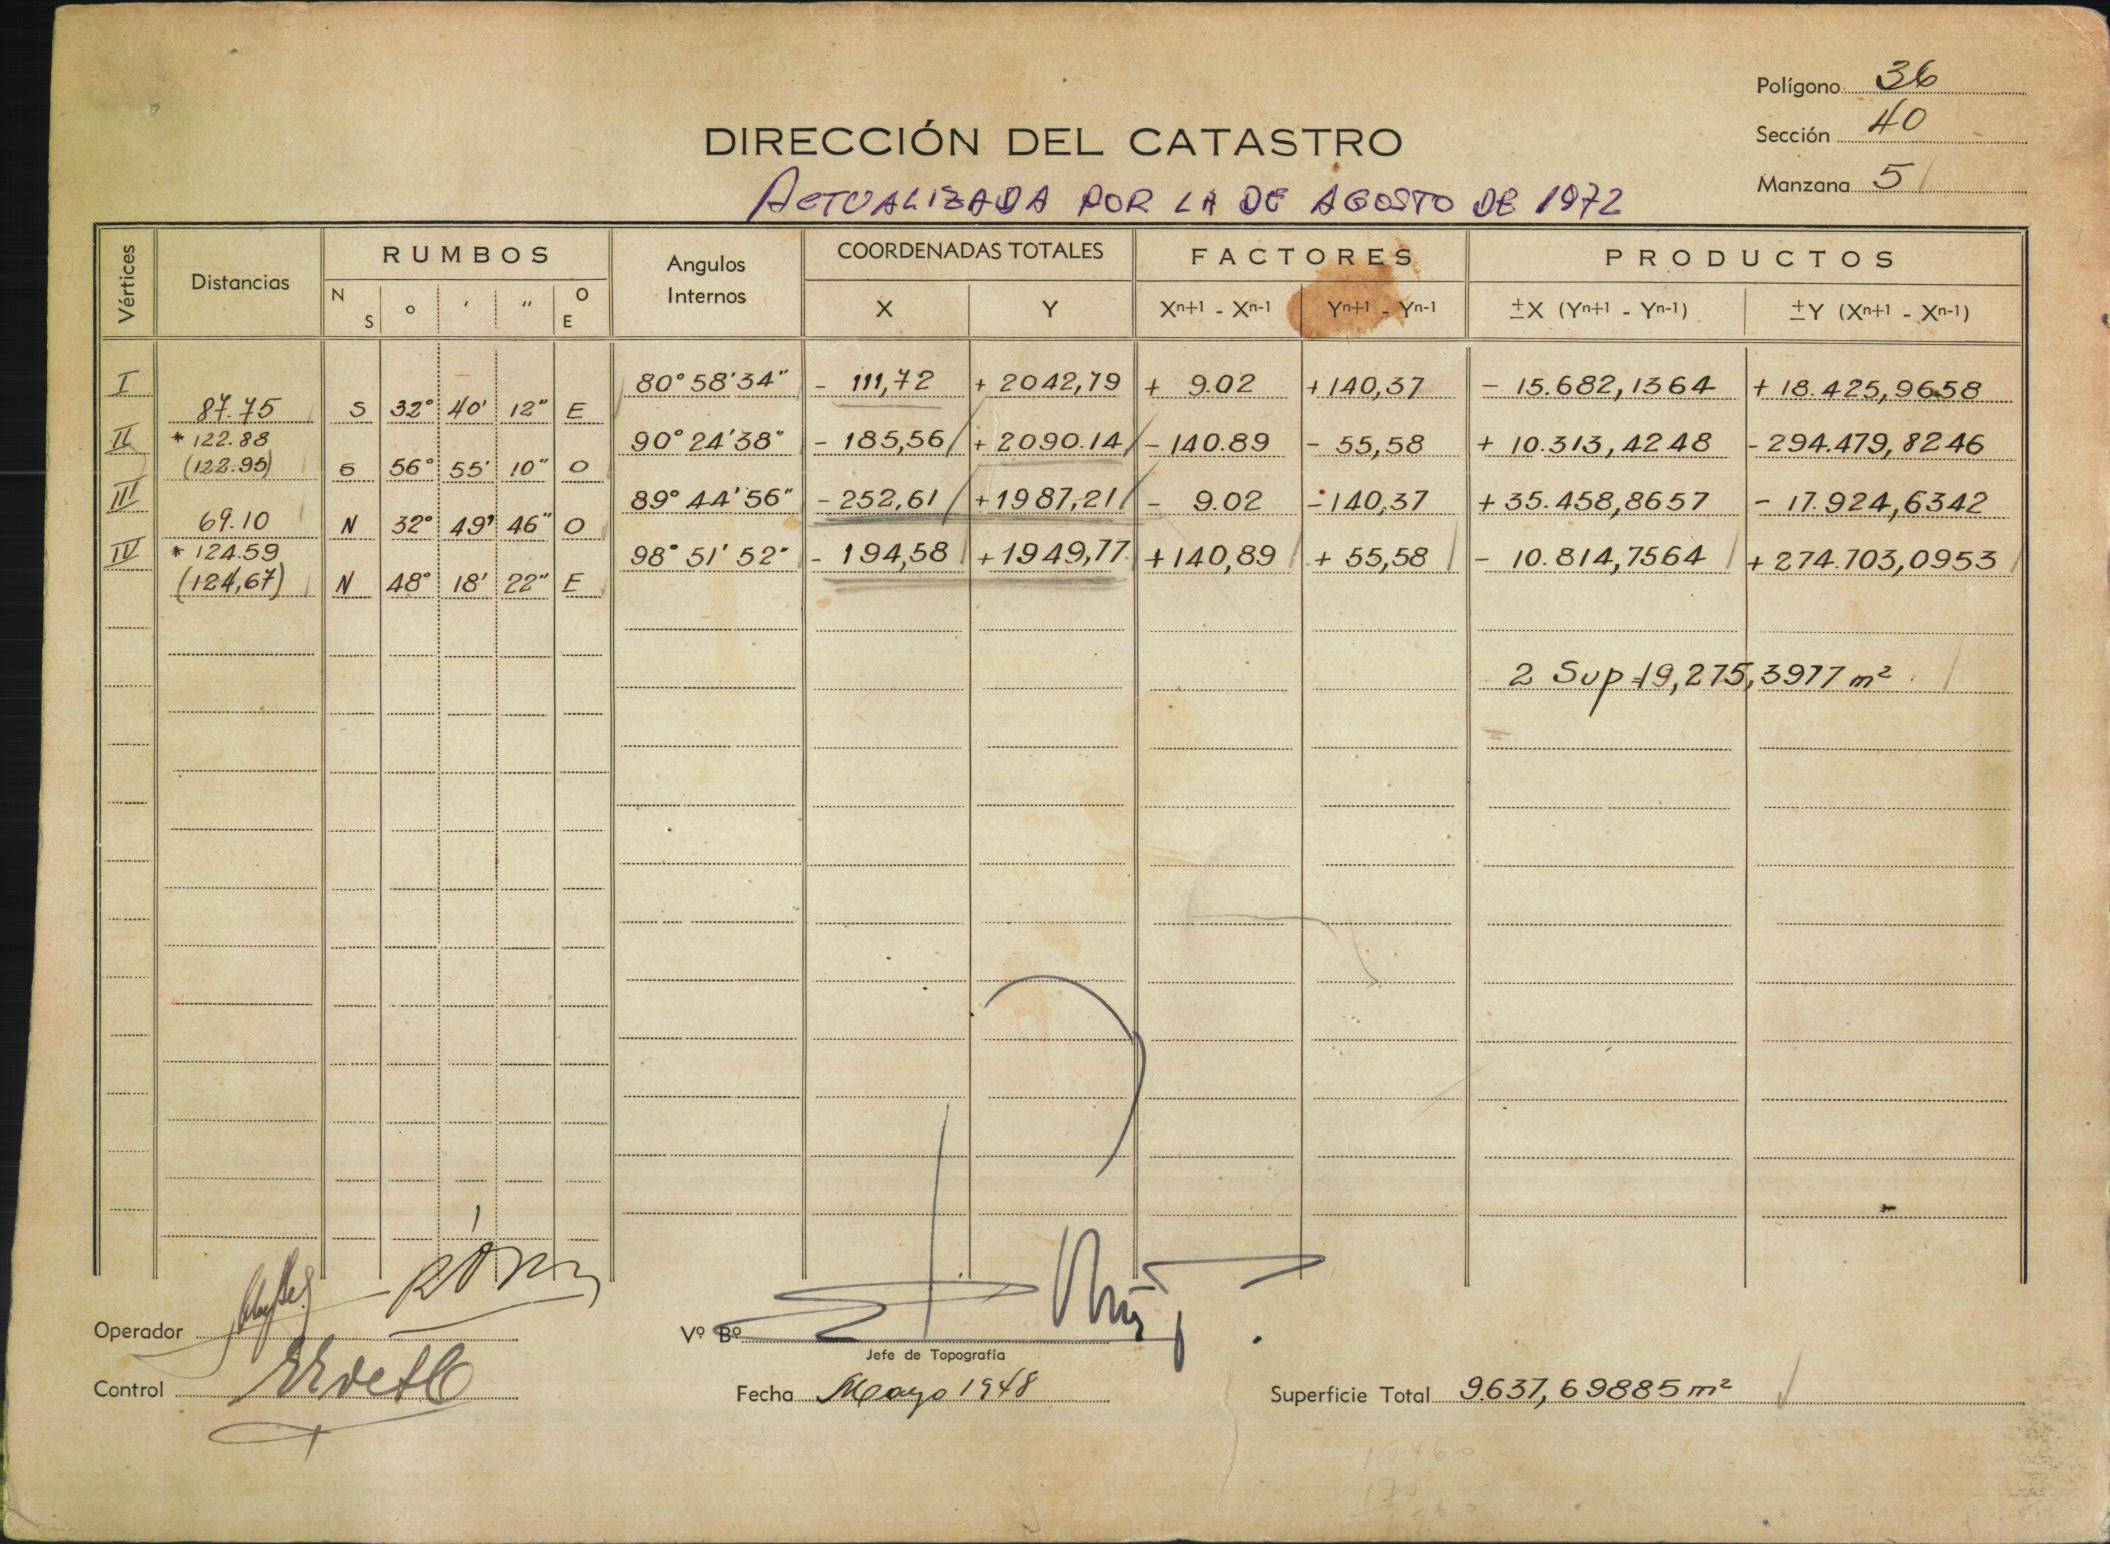 Polígono 36
Sección 40
Manzana 5
DIRECCIÓN DEL CATASTRO
ACTUALIZADA POR LA DE AGOSTO DE 1972
Vértices Distancias RUMBOS Angulos Internos COORDENADAS TOTALES FACTORES PRODUCTOS
N S ° ' " O E X Y Xⁿ⁺¹ - Xⁿ⁻¹ Yⁿ⁺¹ - Yⁿ⁻¹ ±X (Yⁿ⁺¹ - Yⁿ⁻¹) ±Y (Xⁿ⁺¹ - Xⁿ⁻¹)
I 80° 58' 34" - 111,72 + 2042,79 + 9.02 + 140,37 - 15.682,1364 + 18.425,9658
87.75 S 32° 40' 12" E
II * 122.88 90° 24' 38" - 185,56 + 2090.14 - 140.89 - 55,58 + 10.313,4248 - 294.479,8246
(122.95) S 56° 55' 10" O
III 89° 44' 56" - 252,61 + 1987,21 - 9.02 - 140,37 + 35.458,8657 - 17.924,6342
69.10 N 32° 49' 46" O
IV * 124.59 98° 51' 52" - 194,58 + 1949,77 + 140,89 + 55,58 - 10.814,7564 + 274.703,0953
(124,67) N 48° 18' 22" E
2 Sup = 19,275,3977 m²
Operador
Vº Bº
Jefe de Topografía
Control
Fecha Mayo 1948
Superficie Total 9.637,69885 m²